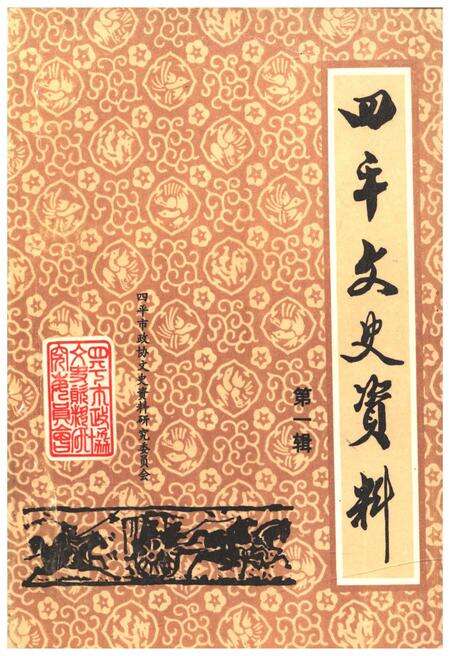 四平文史资料
第一辑
四平市政协文史资料研究委员会
四平市政協
文史資料研
究委員會